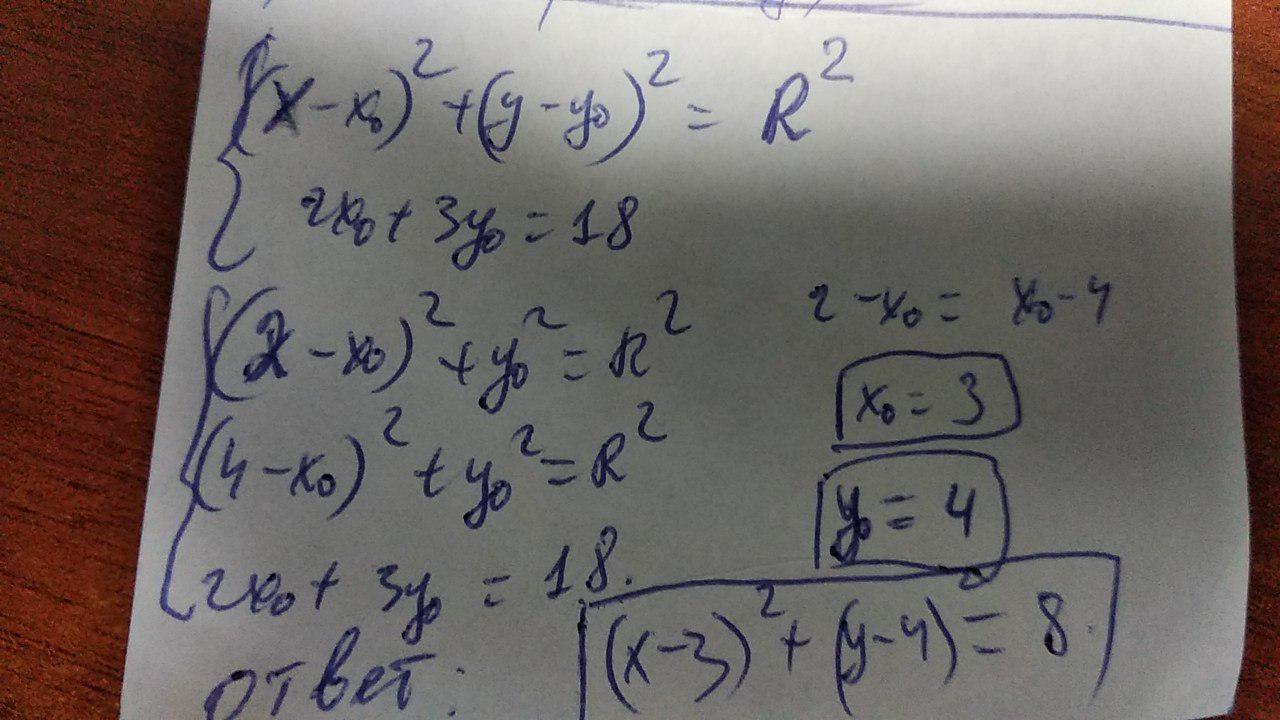 (x-x₀)² + (y-y₀)² = R²
2x₀ + 3y₀ = 18
(2-x₀)² + y₀² = R²
(4-x₀)² + y₀² = R²
2x₀ + 3y₀ = 18.
2-x₀ = x₀-4
x₀ = 3
y₀ = 4
ответ: (x-3)² + (y-4)² = 8.